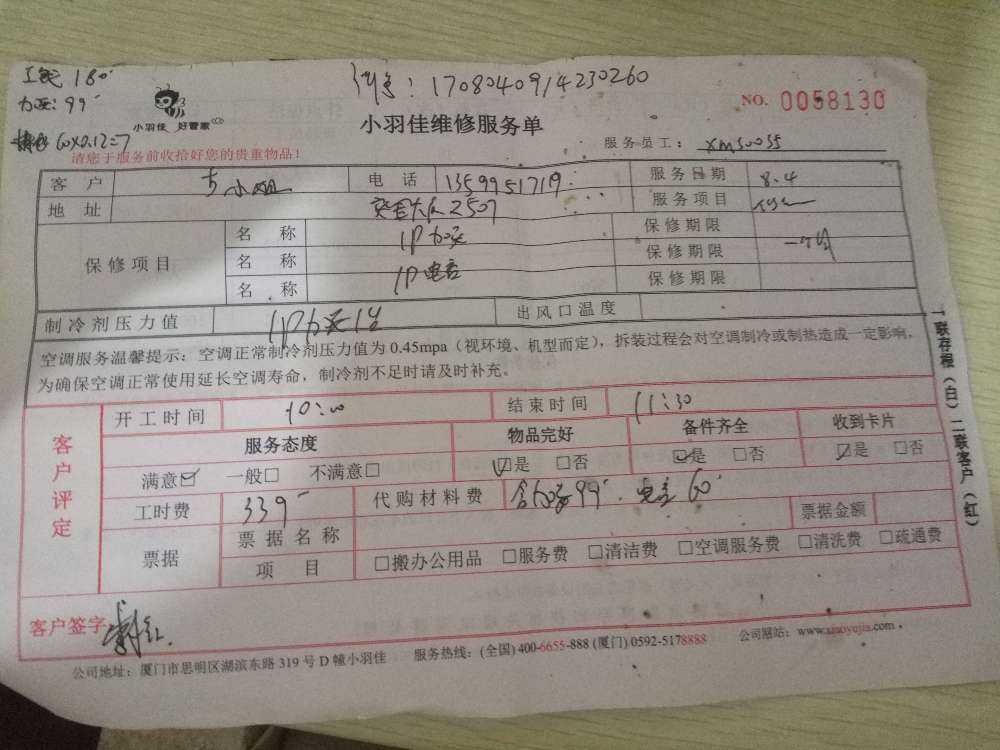 工能 180
加氟:99
60x0.12=7
1708040914230260
NO. 0058130
小羽佳 好管家
小羽佳维修服务单
服务员工: XM50035
请您于服务前收拾好您的贵重物品!
客户 小姐 电话 1359951719 服务日期 8.4
地址 2507 服务项目
保修项目 名称 1P加氟 保修期限
名称 1P电容 保修期限 一个月
名称 保修期限
制冷剂压力值 1P加氟1台 出风口温度
空调服务温馨提示:空调正常制冷剂压力值为 0.45mpa(视环境、机型而定),拆装过程会对空调制冷或制热造成一定影响,
为确保空调正常使用延长空调寿命,制冷剂不足时请及时补充。
客户评定
开工时间 10:00 结束时间 11:30
服务态度 物品完好 备件齐全 收到卡片
满意☑ 一般□ 不满意□ ☑是 □否 ☑是 □否 ☑是 □否
工时费 339 代购材料费 含加氟99、电容60
票据 票据名称 票据金额
项目 □搬办公用品 □服务费 □清洁费 □空调服务费 □清洗费 □疏通费
客户签字
公司地址:厦门市思明区湖滨东路 319 号 D 幢小羽佳 服务热线:(全国) 400-6655-888 (厦门) 0592-5178888 公司网站:www.xiaoyujia.com
一联存根(白) 二联客户(红)